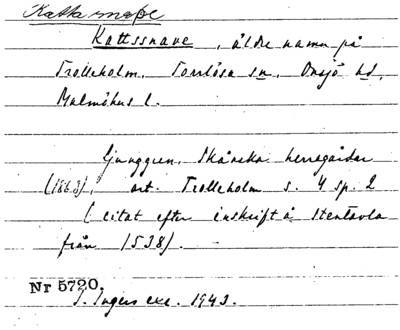 Kattsnape
Kattssnave, äldre namn på
Trolleholm, Torrlösa sn, Onsjö hd,
Malmöhus l.
Ljunggren, Skånska herregårdar
(1863), art. Trolleholm s. 4 sp. 2
(citat efter inskrift å stentavla
från 1538).
Nr 5720.
I. Ingers exc. 1943.